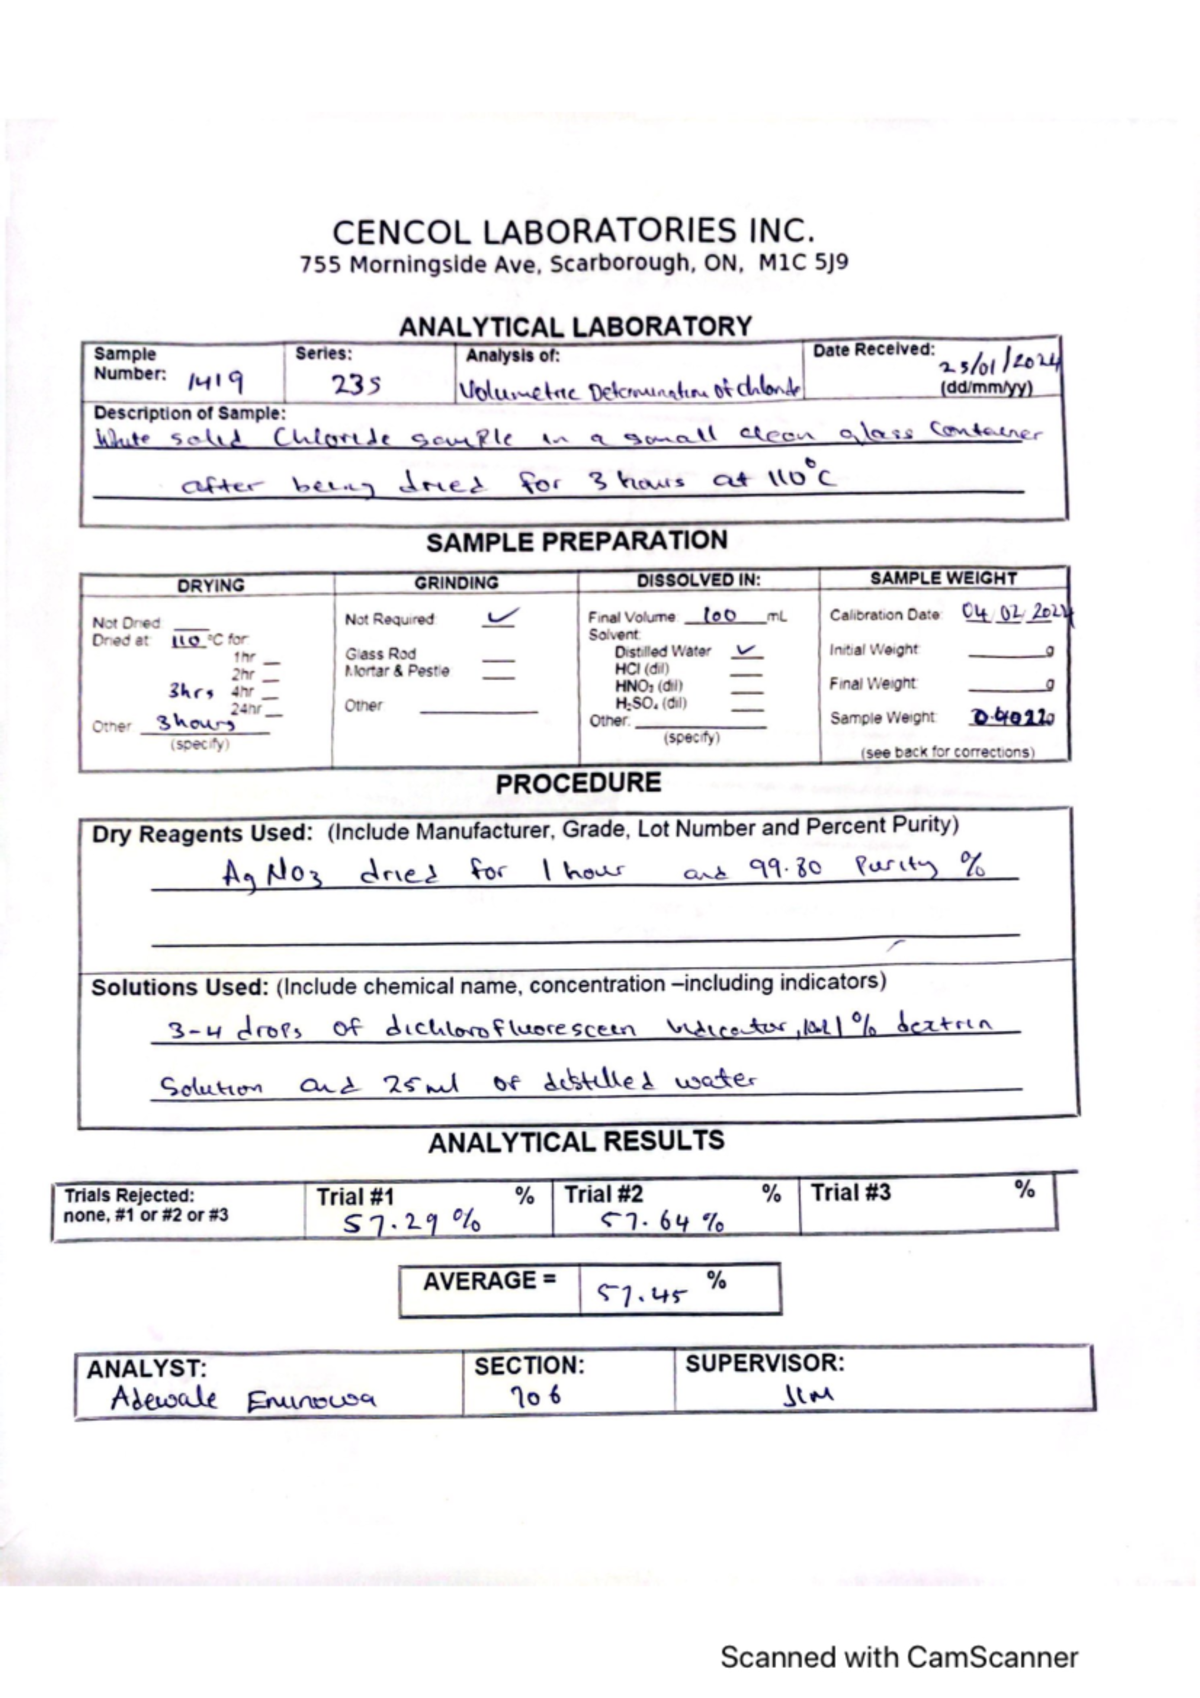 CENCOL LABORATORIES INC.
755 Morningside Ave, Scarborough, ON, M1C 5J9
ANALYTICAL LABORATORY
Sample Number: 1419 Series: 235 Analysis of: Volumetric Determination of Chloride Date Received: 25/01/2024 (dd/mm/yy)
Description of Sample:
White solid Chloride sample in a small clean glass Container
after being dried for 3 hours at 110°C
SAMPLE PREPARATION
DRYING GRINDING DISSOLVED IN: SAMPLE WEIGHT
Not Dried: ___ Not Required ✓ Final Volume 100 mL Calibration Date: 04/02/2024
Dried at: 110 °C for: Solvent:
1hr __ Glass Rod __ Distilled Water ✓ Initial Weight: ____g
2hr __ Mortar & Pestle __ HCl (dil) __
3hrs 4hr __ HNO₃ (dil) __ Final Weight: ____g
24hr __ Other ____ H₂SO₄ (dil) __
Other 3 hours Other: ____ Sample Weight:
(specify) (specify) (see back for corrections)
PROCEDURE
Dry Reagents Used: (Include Manufacturer, Grade, Lot Number and Percent Purity)
AgNO3 dried for 1 hour and 99.80 Purity %
Solutions Used: (Include chemical name, concentration –including indicators)
3-4 drops of dichlorofluorescein Indicator, % dextrin
Solution and 25ml of distilled water
ANALYTICAL RESULTS
Trials Rejected: none, #1 or #2 or #3 Trial #1 % 57.29 % Trial #2 % 57.64 % Trial #3 %
AVERAGE = 57.45 %
ANALYST: Adewale SECTION: 706 SUPERVISOR: JIM
Scanned with CamScanner